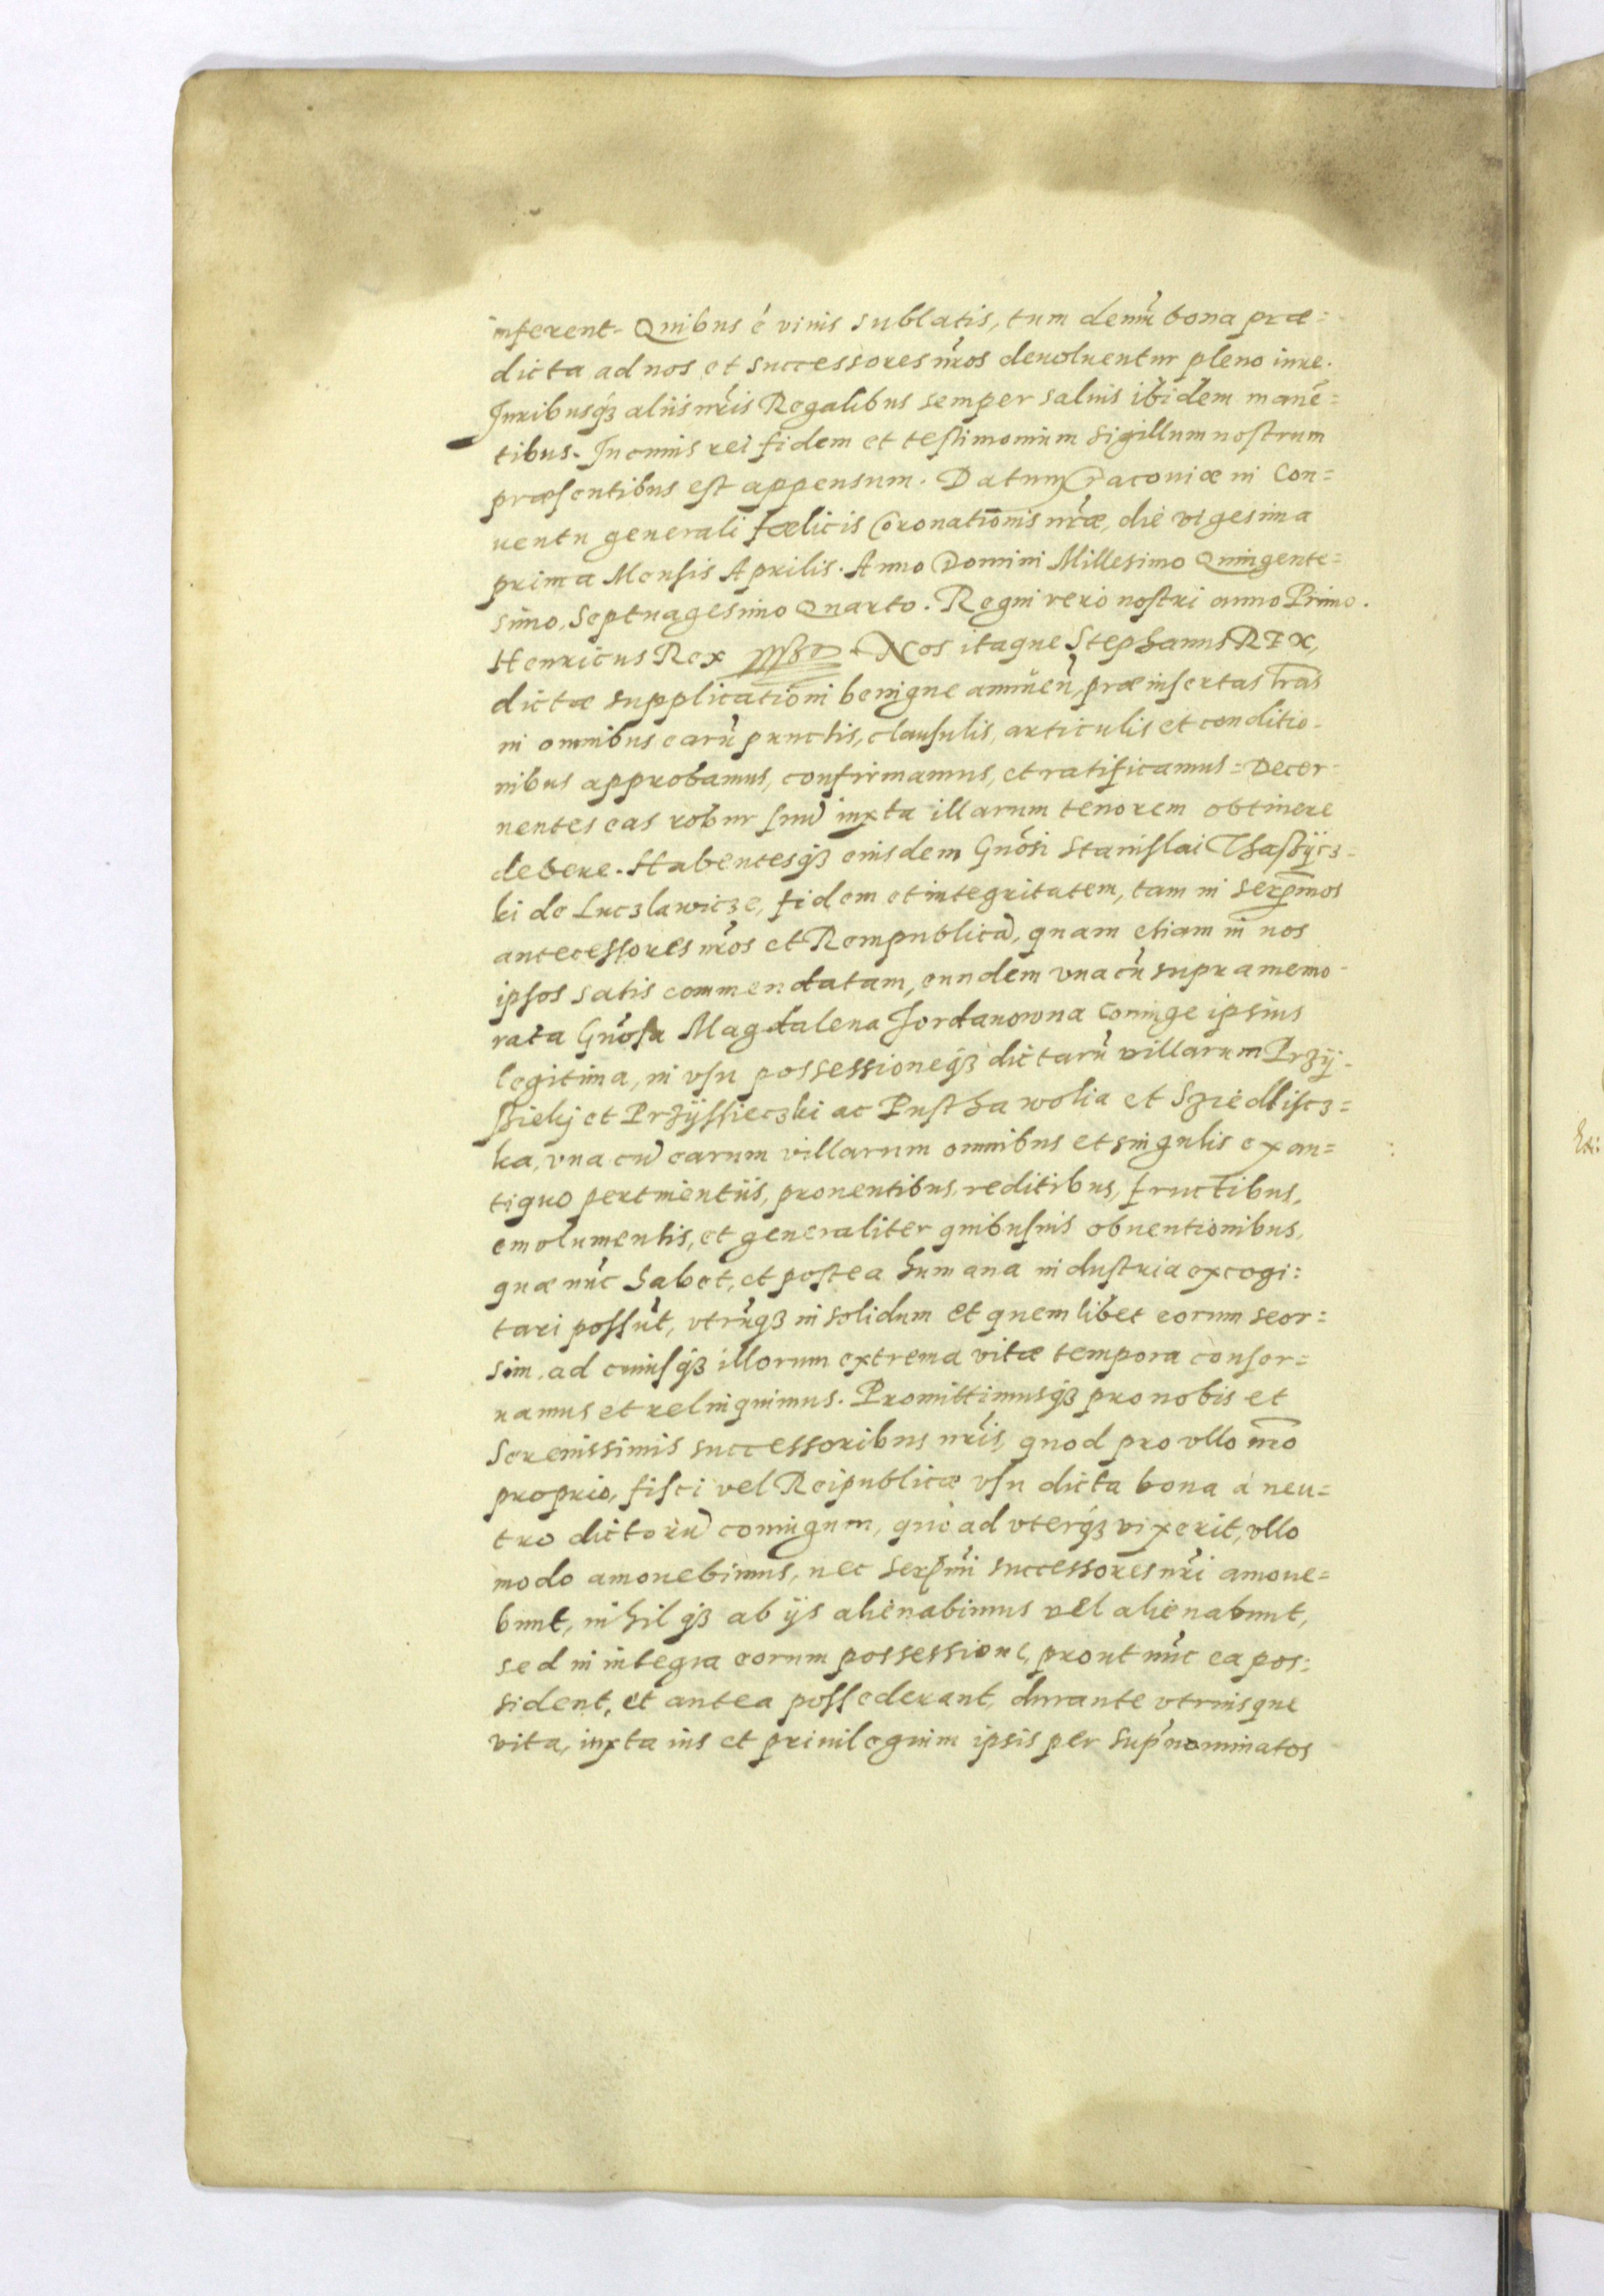 inferent. Quibus é viuis sublatis, tum demũ bona præ=
dicta ad nos et successores nr̃os deuoluentur pleno iure.
Juribusq₃ aliis nr̃is Regalibus semper saluis ibidem manẽ=
tibus. In cuius rei fidem et testimonium sigillum nostrum
præsentibus est appensum. Datum Cracouiæ in Con=
uentu generali fœlicis Coronationis nr̃æ, die vigesima
prima Mensis Aprilis. Anno Domini Millesimo Quingente=
simo, Septuagesimo Quarto. Regni vero nostri anno Primo.
Henricus Rex Nos itaque Stephanus REX,
dictæ supplicationi benigne annueñ, præinsertas l̃ras
in omnibus earũ punctis, clausulis, articulis et conditio-
nibus approbamus, confirmamus, et ratificamus = Decer-
nentes eas robur suũ iuxta illarum tenorem obtinere
debere. Habentesq₃ eiusdem Gñosi Stanislai Thaszÿcz-
ki de Luczlawicze, fidem et integritatem, tam in serp̃mos
antecessores nr̃os et Rempublicã, quam etiam in nos
ipsos satis commendatam, eundem vna cũ supramemo-
rata Gñosa Magdalena Jordanowna Coniuge ipsius
legitima, in vsu possessioneq₃ dictarũ villarum Przÿ-
sziekj et Przÿssieczki ac Pustha wolia et Sziedliscz=
ka, vna cũ earum villarum omnibus et singulis ex an=
tiquo pertinentiis, prouentibus, reditibus, fructibus,
emolumentis, et generaliter quibusuis obuentionibus,
quæ nũc habet, et postea humana industria excogi=
tari possũt, vtrũq₃ in solidum et quemlibet eorum seor=
sim, ad cuiusq₃ illorum extrema vitæ tempora conser=
uamus et relinquimus. Promittimusq₃ pro nobis et
Serenissimis successoribus nr̃is, quod pro vllo nr̃o
proprio, fisci vel Reipublicæ vsu dicta bona à neu=
tro dictorũ coniugum, quò ad vterq₃ vixerit, vllo
modo amouebimus, nec serp̃mi successores nr̃i amoue=
bunt, nihilq₃ ab ijs alienabimus vel alienabunt,
sed in integra eorum possessione, prout nũc ea pos=
sident, et antea possederant, durante vtriusque
vita, iuxta ius et priuilegium ipsis per sup̃nominatos